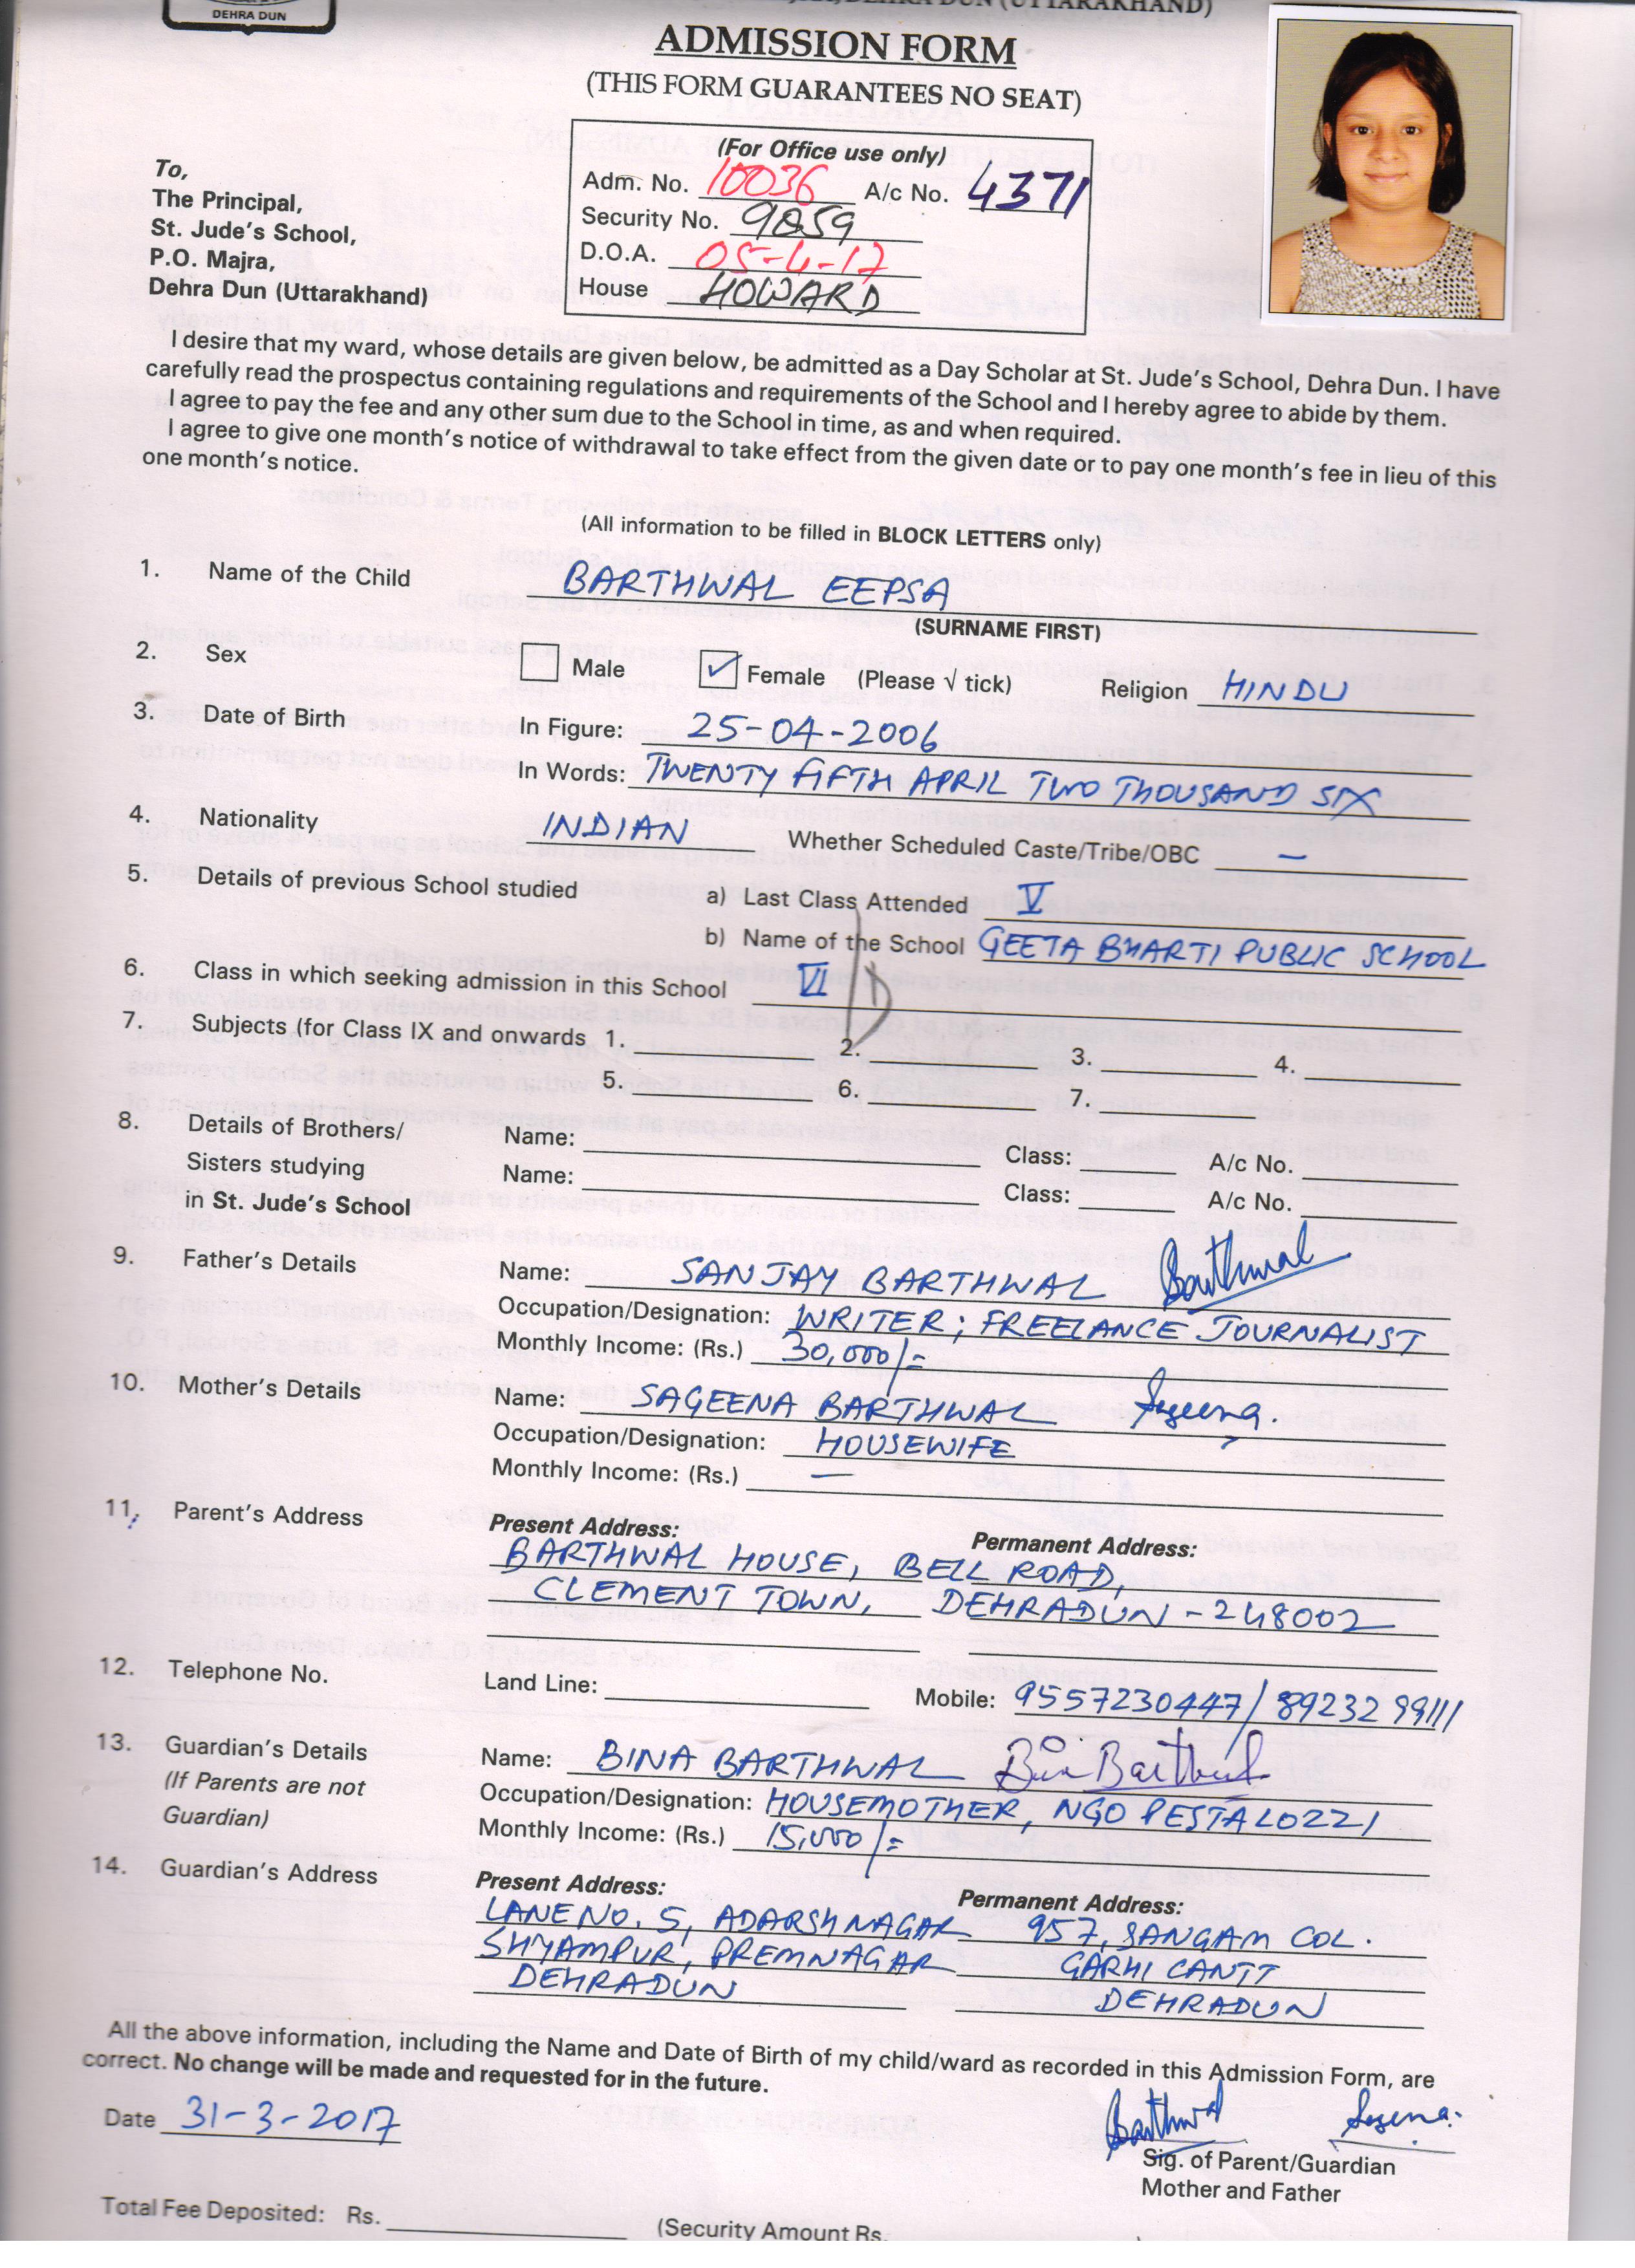 DEHRA DUN
DEHRA DUN (UTTARAKHAND)
ADMISSION FORM
(THIS FORM GUARANTEES NO SEAT)
(For Office use only)
Adm. No. 10036 A/c No. 4371
Security No. 9859
D.O.A. 05-4-17
House HOWARD
To,
The Principal,
St. Jude's School,
P.O. Majra,
Dehra Dun (Uttarakhand)
I desire that my ward, whose details are given below, be admitted as a Day Scholar at St. Jude's School, Dehra Dun. I have
carefully read the prospectus containing regulations and requirements of the School and I hereby agree to abide by them.
I agree to pay the fee and any other sum due to the School in time, as and when required.
I agree to give one month's notice of withdrawal to take effect from the given date or to pay one month's fee in lieu of this
one month's notice.
(All information to be filled in BLOCK LETTERS only)
1. Name of the Child BARTHWAL EEPSA
(SURNAME FIRST)
2. Sex Male ✓ Female (Please √ tick) Religion HINDU
3. Date of Birth In Figure: 25-04-2006
In Words: TWENTY FIFTH APRIL TWO THOUSAND SIX
4. Nationality INDIAN Whether Scheduled Caste/Tribe/OBC —
5. Details of previous School studied a) Last Class Attended V
b) Name of the School GEETA BHARTI PUBLIC SCHOOL
6. Class in which seeking admission in this School VI D
7. Subjects (for Class IX and onwards 1. 2. 3. 4.
5. 6. 7.
8. Details of Brothers/ Name: Class: A/c No.
Sisters studying Name: Class: A/c No.
in St. Jude's School
9. Father's Details Name: SANJAY BARTHWAL Barthwal
Occupation/Designation: WRITER; FREELANCE JOURNALIST
Monthly Income: (Rs.) 30,000/=
10. Mother's Details Name: SAGEENA BARTHWAL Sageena.
Occupation/Designation: HOUSEWIFE
Monthly Income: (Rs.) —
11. Parent's Address Present Address: Permanent Address:
BARTHWAL HOUSE, BELL ROAD,
CLEMENT TOWN, DEHRADUN - 248002
12. Telephone No. Land Line: Mobile: 9557230447/8923299111
13. Guardian's Details Name: BINA BARTHWAL Bina Barthwal
(If Parents are not Occupation/Designation: HOUSEMOTHER, NGO PESTALOZZI
Guardian) Monthly Income: (Rs.) 15,000/=
14. Guardian's Address Present Address: Permanent Address:
LANE NO. 5, ADARSH NAGAR 957, SANGAM COL.
SHYAMPUR, PREMNAGAR GARHI CANTT
DEHRADUN DEHRADUN
All the above information, including the Name and Date of Birth of my child/ward as recorded in this Admission Form, are
correct. No change will be made and requested for in the future.
Date 31-3-2017 Barthwal Sageena.
Sig. of Parent/Guardian
Mother and Father
Total Fee Deposited: Rs. (Security Amount Rs.